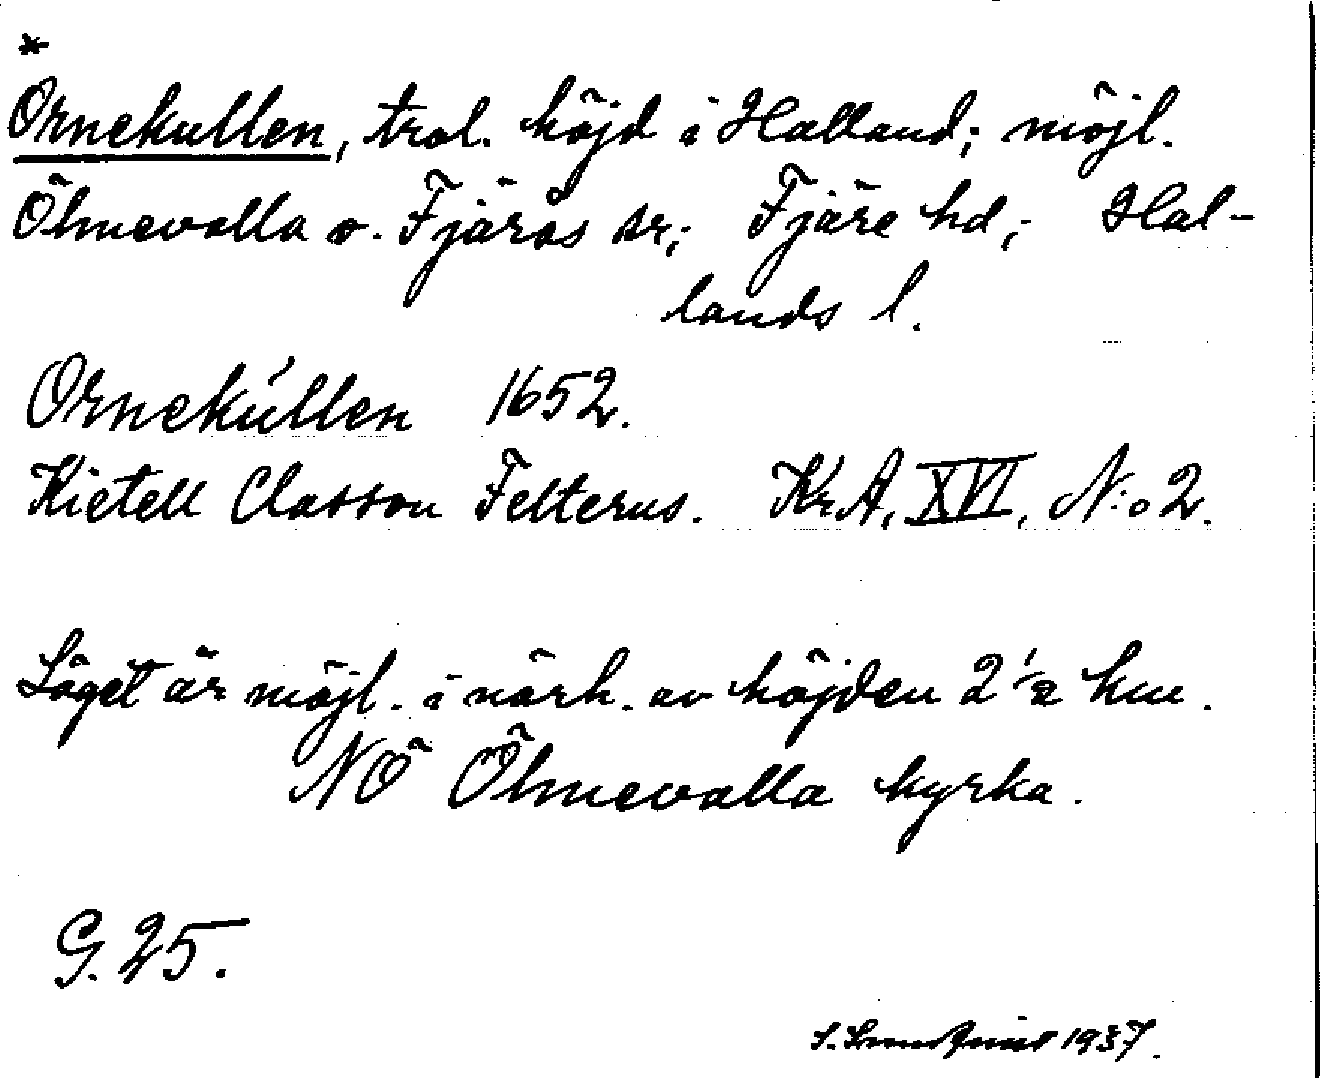 *
Ornekullen, trol. höjd i Halland; möjl.
Ölmevalla o. Fjärås sr; Fjäre hd; Hal-
lands l.
Ornekúllen 1652.
Kietell Classon Felterus. KrA, XVI, N:o 2.
Läget är möjl. i närh. av höjden 2 1/2 km.
NÖ Ölmevalla kyrka.
G. 25.
1937.